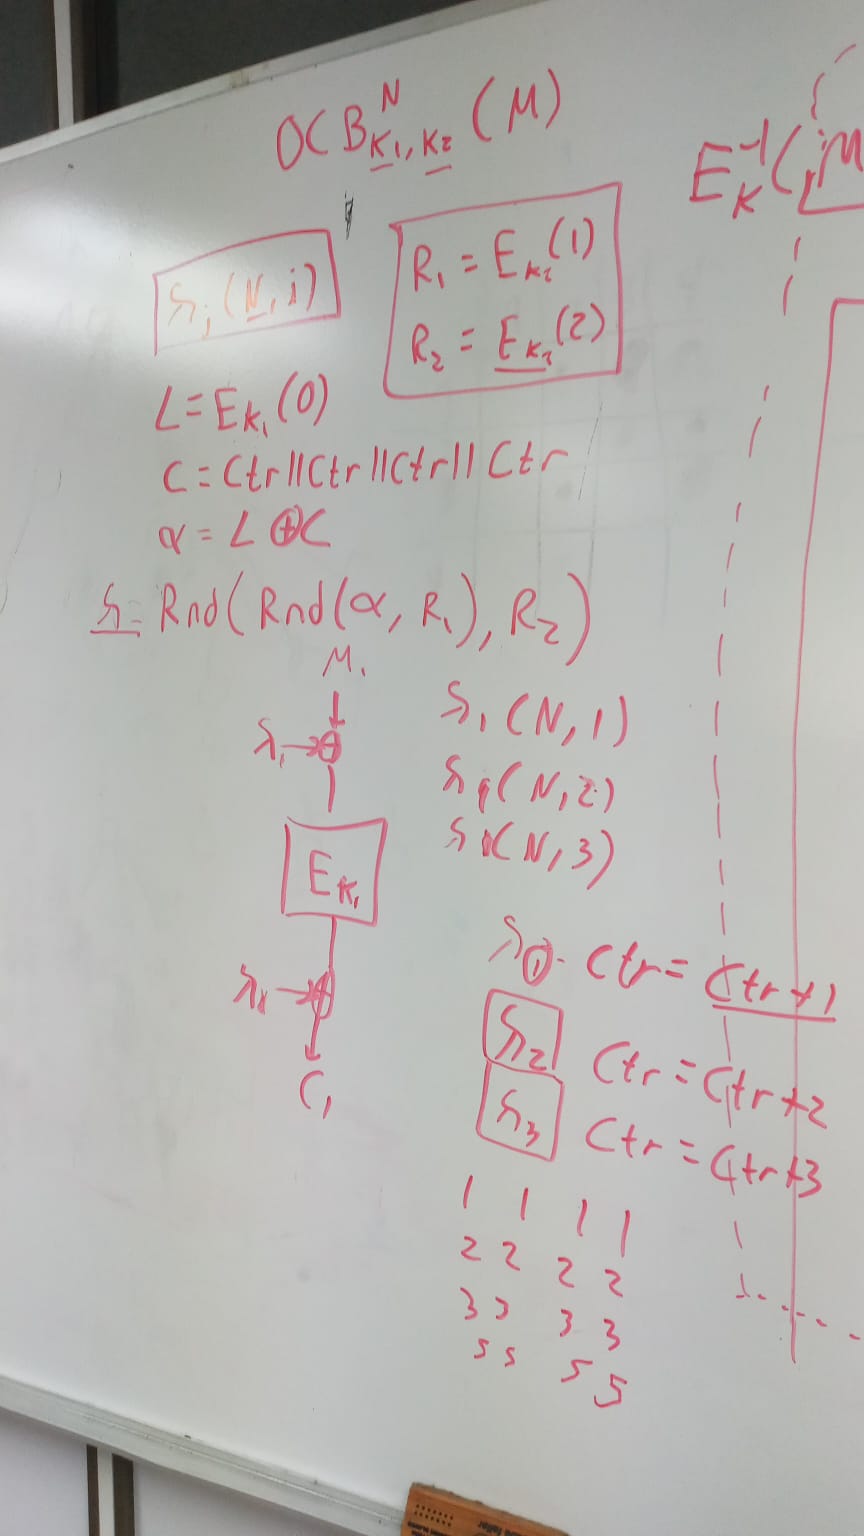 OCB^N_{K1,K2} (M)
E_K^{-1}(M
λ_i (N, i)
R_1 = E_{K2}(1)
R_2 = E_{K2}(2)
L = E_{K1}(0)
C = Ctr||Ctr||Ctr||Ctr
α = L ⊕ C
λ = Rnd(Rnd(α, R_1), R_2)
M_1
λ_1 → ⊕
E_{K1}
λ_1 → ⊕
C_1
λ_1 (N, 1)
(N, 2)
(N, 3)
Ctr = Ctr+1
λ_2 Ctr = Ctr+2
λ_3 Ctr = Ctr+3
1 1 1 1
2 2 2 2
3 3 3 3
5 5 5 5